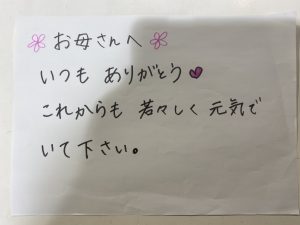 お母さんへ
いつも ありがとう
これからも 若々しく 元気で
いて下さい。